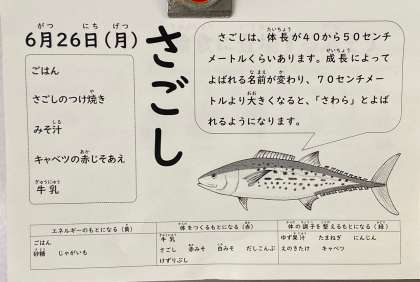 6月26日(月)
さごし
ごはん
さごしのつけ焼き
みそ汁
キャベツの赤じそあえ
牛乳
さごしは、体長が40から50センチ
メートルくらいあります。成長によって
よばれる名前が変わり、70センチメー
トルより大きくなると、「さわら」とよば
れるようになります。
エネルギーのもとになる(黄)
ごはん
砂糖 じゃがいも
体をつくるもとになる(赤)
牛乳
さごし 赤みそ 白みそ だしこんぶ
けずりぶし
体の調子を整えるもとになる(緑)
ゆず果汁 たまねぎ にんじん
えのきたけ キャベツ